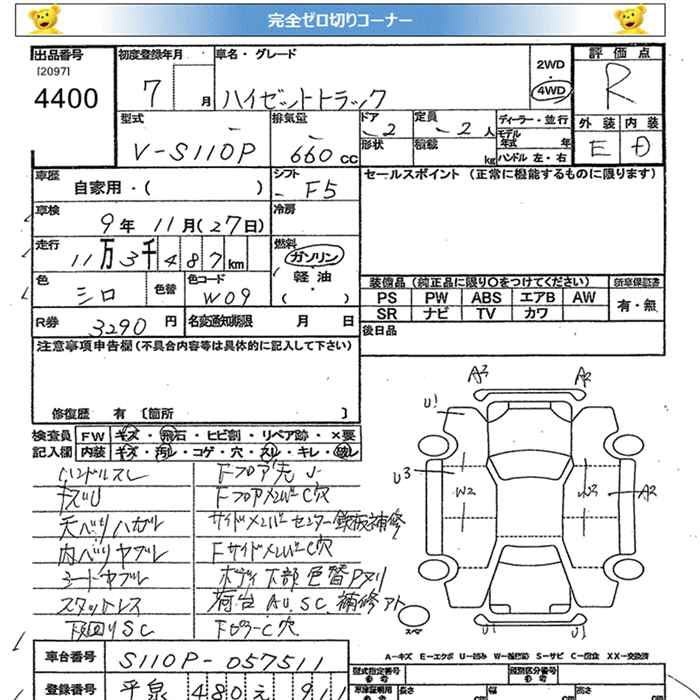 完全ゼロ切りコーナー
出品番号
[2097]
4400
初度登録年月
7
月
車名・グレード
ハイゼットトラック
2WD
・
4WD
評価点
R
型式
V-S110P
排気量
660 CC
ドア
2
定員
2 人
形状
積載
kg
ディーラー・並行
モデル
年式 年
ハンドル 左・右
外装
内装
E
D
車歴
自家用・( )
シフト
F5
セールスポイント (正常に機能するものに限ります)
車検
9年 11月(27日)
冷房
走行
11万3千487km
燃料
ガソリン
軽油
( ・ )
色
シロ
色替
色コード
W09
装備品(純正品に限り〇をつけてください)
新車保証書
PS PW ABS エアB AW
SR ナビ TV カワ
有・無
R券
3290 円
名変通知期限 月 日
後日品
注意事項申告欄(不具合内容等は具体的に記入して下さい)
修復歴 有 [箇所 ]
検査員
記入欄
FW キズ・飛石・ヒビ割・リペア跡・×要
内装 キズ・汚レ・コゲ・穴・スレ・キレ・破レ
ハンドルスレ
キズU
天ベリハガレ
内ベリヤブレ
シートヤブレ
スタットレス
下廻りSC
Fフロア先
FフロアメンバーC穴
サイドメンバーセンター鉄板補修
FサイドメンバーC穴
ボディ下部色替Pヌリ
荷台AU.SC.補修アト
FピラーC穴
A3
A2
U1
U3
W2
W3
A2
スペア
U1
U1
A-キズ E-エクボ U-凹み W-補修跡 S-サビ C-腐食 XX-交換済
車台番号
S110P-057511
登録番号
平泉 480 え 911
型式指定番号
類別区分番号
長さ
cm
幅
cm
高さ
cm